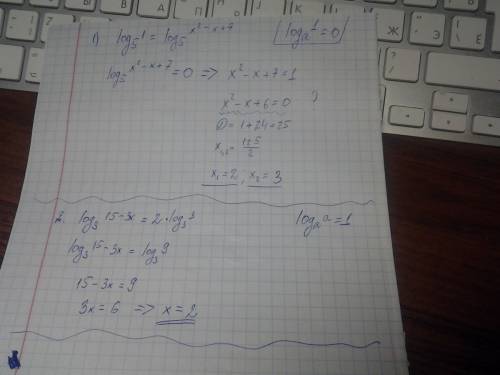 1) log₅ 1 = log₅ x²-x+7
logₐ 1 = 0
log₅ x²-x+7 = 0 => x²-x+7=1
x²-x+6=0
D = 1+24=25
x₁,₂ = (1±5)/2
x₁=2, x₂=3
2. log₃ 15-3x = 2·log₃ 3
logₐ a = 1
log₃ 15-3x = log₃ 9
15-3x=9
3x=6 => x=2